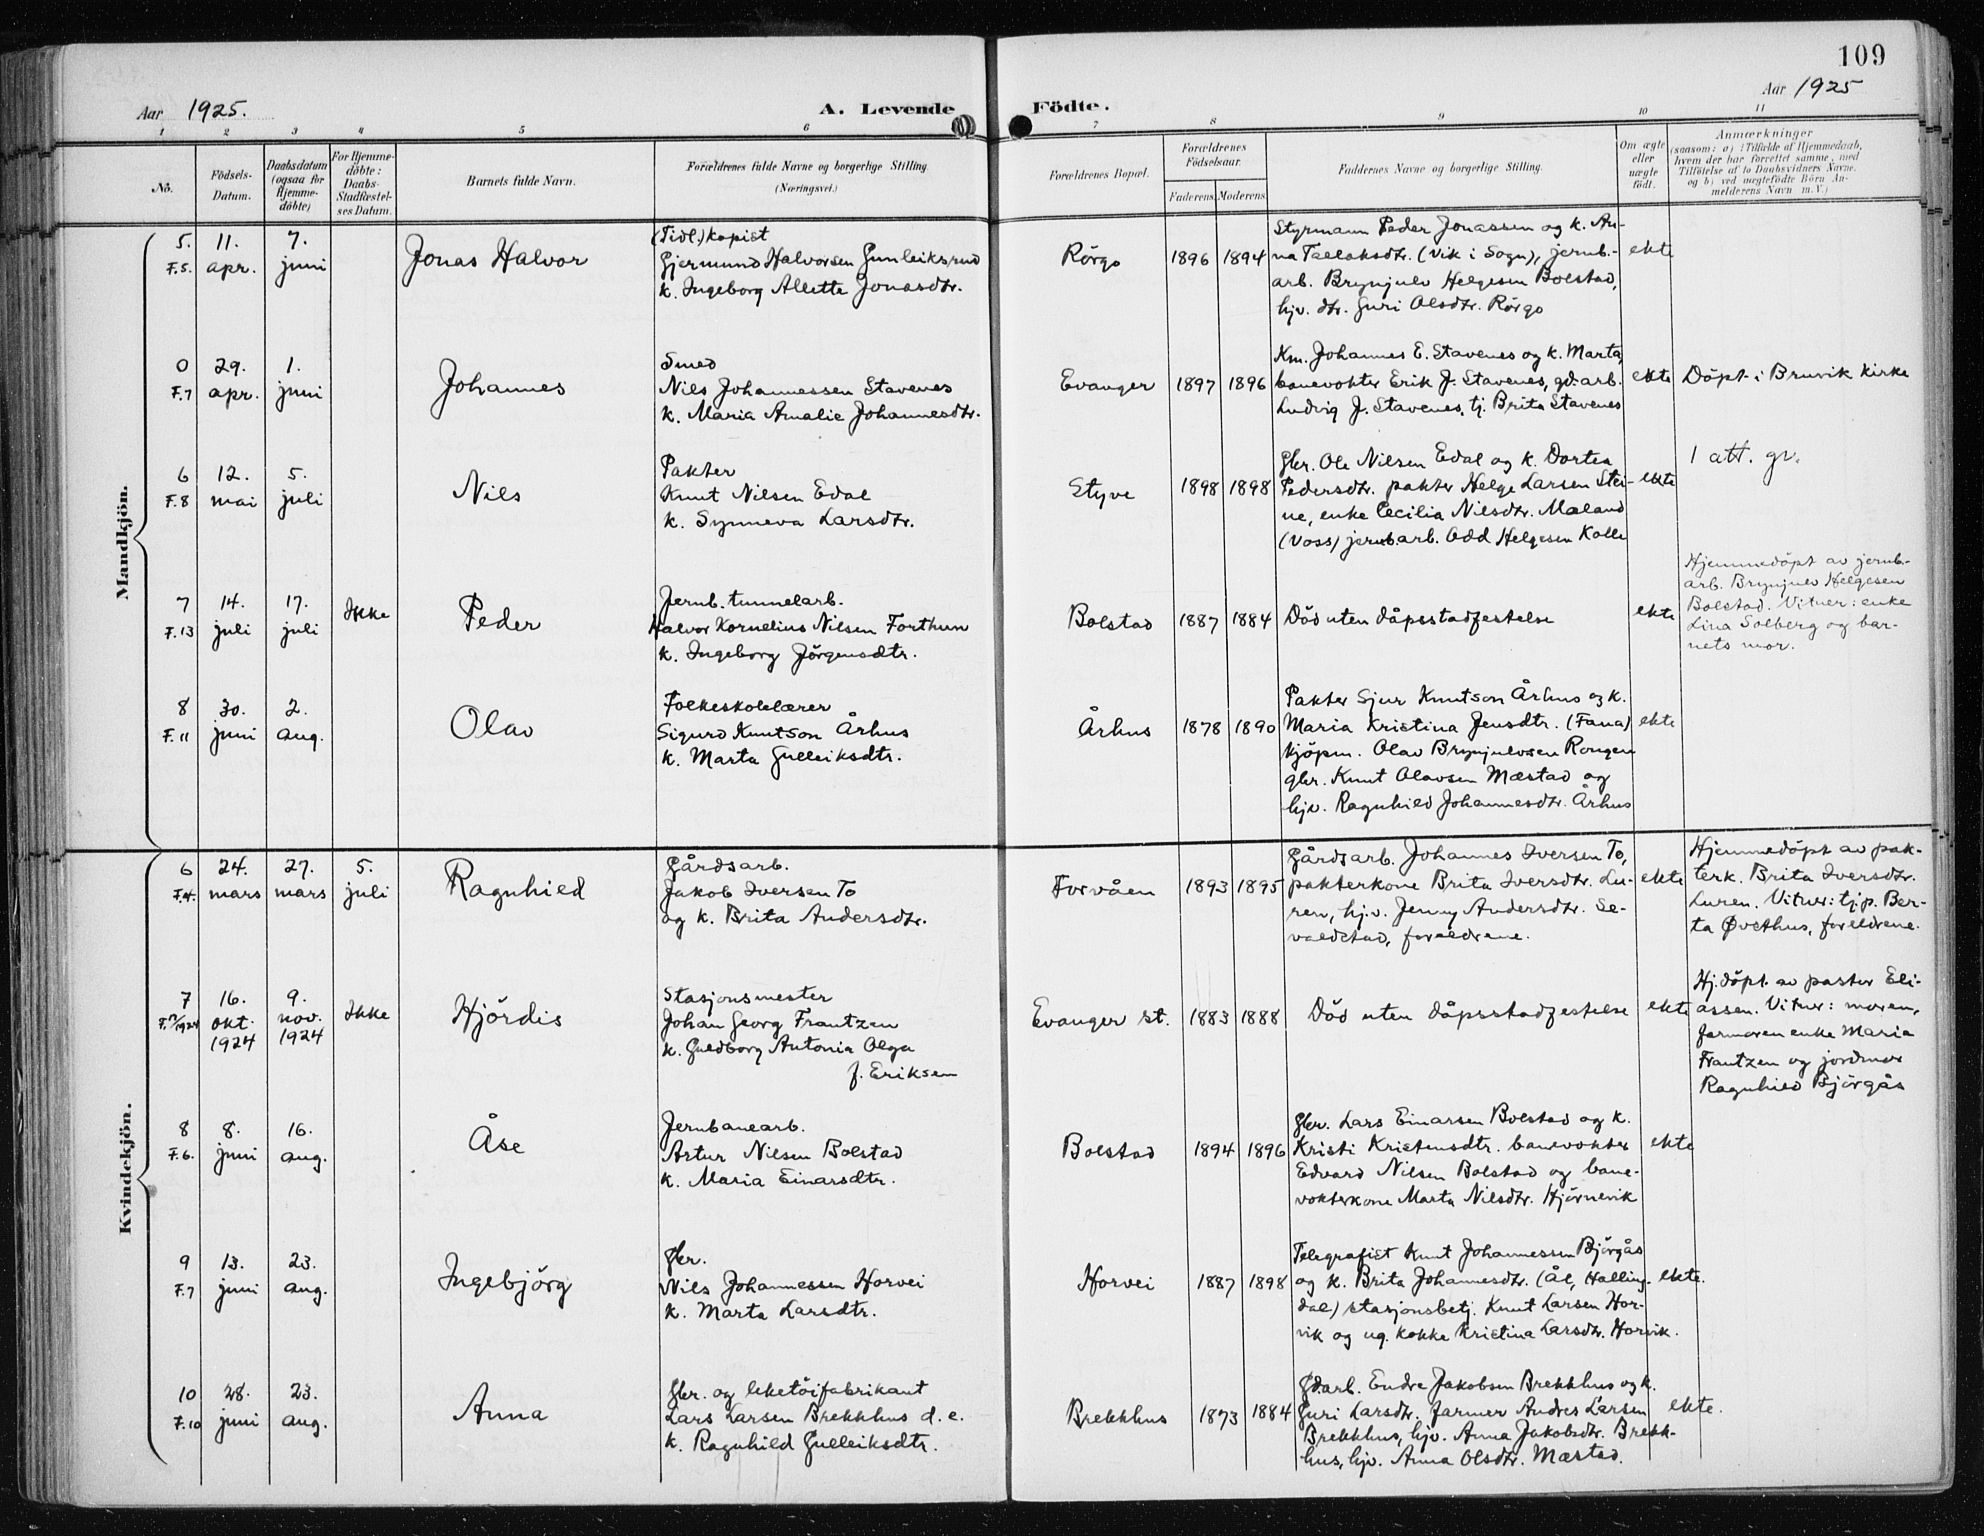 109
Aar 1925.
A. Levende
Födte.
Aar 1925
1 2 3 4 5 6 7 8 9 10 11
No.
Födsels-
Datum.
Daabsdatum
(ogsaa for
Hjemme-
döbte)
For Hjemme-
döbte:
Daabs-
Stadfæstel-
ses Datum.
Barnets fulde Navn.
Forældrenes fulde Navne og borgerlige Stilling.
(Næringsvei.)
Forældrenes Bopæl.
Forældrenes
Födselsaar.
Faderens. Moderens.
Faddernes Navne og borgerlige Stilling.
Om ægte
eller
uægte
födt.
Anmærkninger
(saasom: a) i Tilfælde af Hjemmedaab,
hvem der har forrettet samme, med
Tilföielse af to Daabsvidners Navne,
og b) ved uægtefödte Börn An-
melderens Navn m.V.)
Mandkjön.
5.
F.5.
11.
apr.
7.
juni
Jonas Halvor
(Tidl.) kopist
Gjermund Halvorsen Gunleiksrud
k. Ingeborg Alette Jonasdtr.
Rörgo
1896
1894
Styrmann Peder Jonassen og k. An-
na Tallaksdtr. (Vik i Sogn), jernb.-
arb. Brynjulv Helgesen Bolstad,
hjv. dtr. Guri Olsdtr. Rörgo
ekte
0
F.7
29.
apr.
1.
juni
Johannes
Smed
Nils Johannessen Stavenes
k. Maria Amalie Johannesdtr.
Evanger
1897
1896
Km. Johannes E. Stavenes og k. Marta,
banevokter Erik J. Stavenes, gd.arb.
Ludvig J. Stavenes, tj. Brita Stavenes
ekte
Döpt i Bruvik kirke
6
F.8
12.
mai
5.
juli
Nils
Pakter
Knut Nilsen Edal
k. Synneva Larsdtr.
Styve
1898
1898
Gbr. Ole Nilsen Edal og k. Dortea
Pedersdtr. pakter Helge Larsen Stei-
ne, enke Cecilia Nilsdtr. Mæland
(Voss) jernb.arb. Odd Helgesen Kalle
ekte
1 att. gr.
7
F.13
14.
juli
17.
juli
Ikke
Peder
Jernb. tunnelarb.
Halvor Kornelius Nilsen Forthun
k. Ingeborg Jörgensdtr.
Bolstad
1887
1884
Död uten dåpsstadfestelse
ekte
Hjemmedöpt av jernb.-
arb. Brynjulv Helgesen
Bolstad. Vitner: enke
Lina Solberg og bar-
nets mor.
8
F.11
30.
juni
2.
aug.
Olav
Folkeskolelærer
Sigurd Knutson Århus
k. Marta Gulleiksdtr.
Århus
1878
1890
Pakter Sjur Knutson Århus og k.
Maria Kristina Jensdtr. (Fana)
kjöpm. Olav Brynjulvsen Rongen
gbr. Knut Olavsen Mæstad og
hjv. Ragnhild Johannesdtr. Århus
ekte
Kvindekjön.
6
F.4.
24.
mars
27.
mars
5.
juli
Ragnhild
Gårdsarb.
Jakob Iversen To
og k. Brita Andersdtr.
Forvåen
1893
1895
Gårdsarb. Johannes Iversen To,
pakterkone Brita Iversdtr. Lu-
ren, hj.v. Jenny Andersdtr. Se-
valdstad, foreldrene.
ekte
Hjemmedöpt av pak-
terk. Brita Iversdtr.
Luren. Vitner: tj.p. Ber-
ta Øvsthus, foreldrene.
7
16.
okt.
1924
9.
nov.
1924
Ikke
Hjördis
Stasjonsmester
Johan Georg Frantzen
k. Guldborg Antonia Olga
f. Eriksen
Evanger st.
1883
1888
Död uten dåpsstadfestelse
ekte
Hj.döpt av pastor Eli-
assen. Vitner: moren,
farmoren enke Maria
Frantzen og jordmor
Ragnhild Björgås
8
F.6.
8.
juni
16.
aug.
Åse
Jernbanearb.
Artur Nilsen Bolstad
k. Maria Einarsdtr.
Bolstad
1894
1896
Gbr. Lars Einarsen Bolstad og k.
Kristi Kristensdtr. banevokter
Edvard Nilsen Bolstad og bane-
vokterkone Marta Nilsdtr. Hjörnevik
ekte
9
F.7
13.
juni
23.
aug.
Ingebjörg
Gbr.
Nils Johannessen Horvei
k. Marta Larsdtr.
Horvei
1887
1898
Telegrafist Knut Johannessen Björgås
og k. Brita Johannesdtr. (Ål, Halling-
dal) stasjonsbetj. Knut Larsen Hor-
vik og ug. kokke Kristina Larsdtr. Horvik.
ekte.
10
F.10
28.
juni
23.
aug.
Anna
Gbr. og leketöifabrikant
Lars Larsen Brekkhus d. e.
k. Ragnhild Gulleiksdtr.
Brekkhus
1873
1884
Gd.arb. Endre Jakobsen Brekkhus og k.
Guri Larsdtr. farmer Andres Larsen
Brekkhus, hjv. Anna Jakobsdtr. Brekk-
hus, hjv. Anna Olsdtr. Mæstad.
ekte.